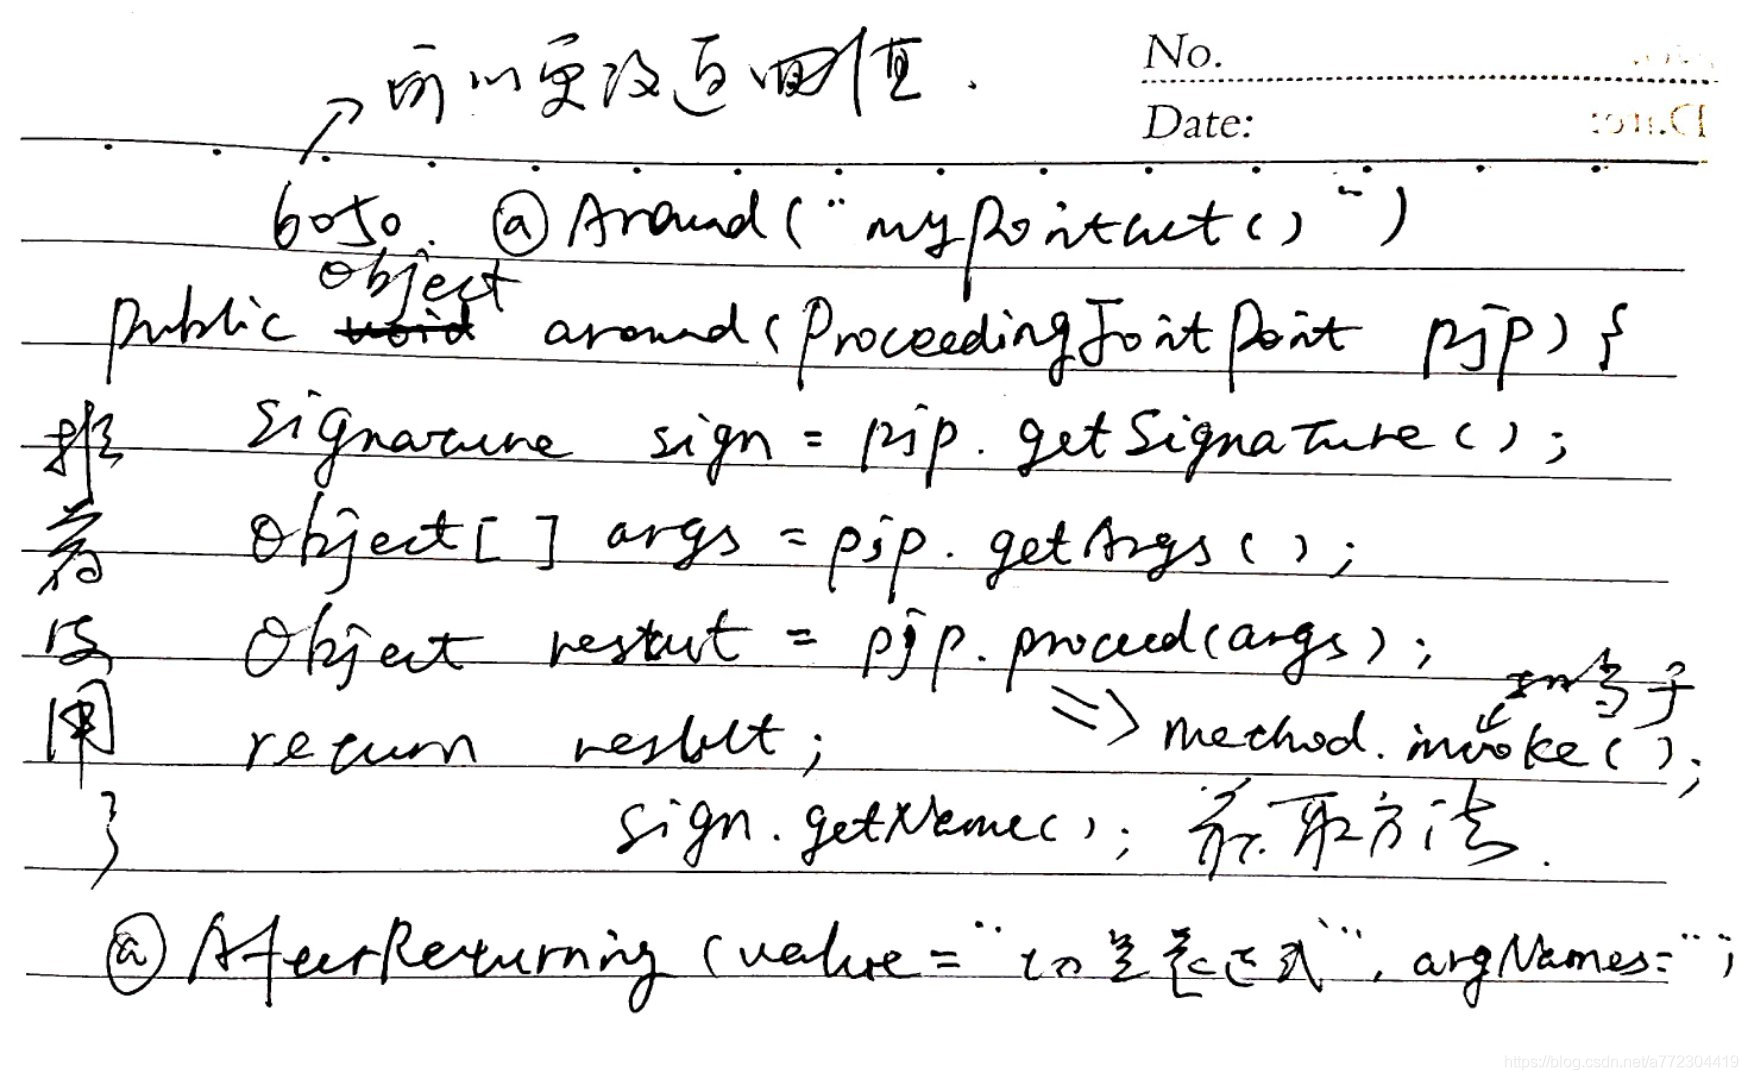 No.
所以更改返回值.
Date:
6050. @Around("myPointcut()")
Object
public void around(ProceedingJoitPoint pjp) {
Signature sign = pjp.getSignature();
Object[] args = pjp.getArgs();
Object restut = pjp.proceed(args);
相当于
return result; => method.invoke();
} sign.getName(); 获取方法.
@AfterReturning (value="切点表达式", argNames="";
推荐使用
https://blog.csdn.net/a772304419